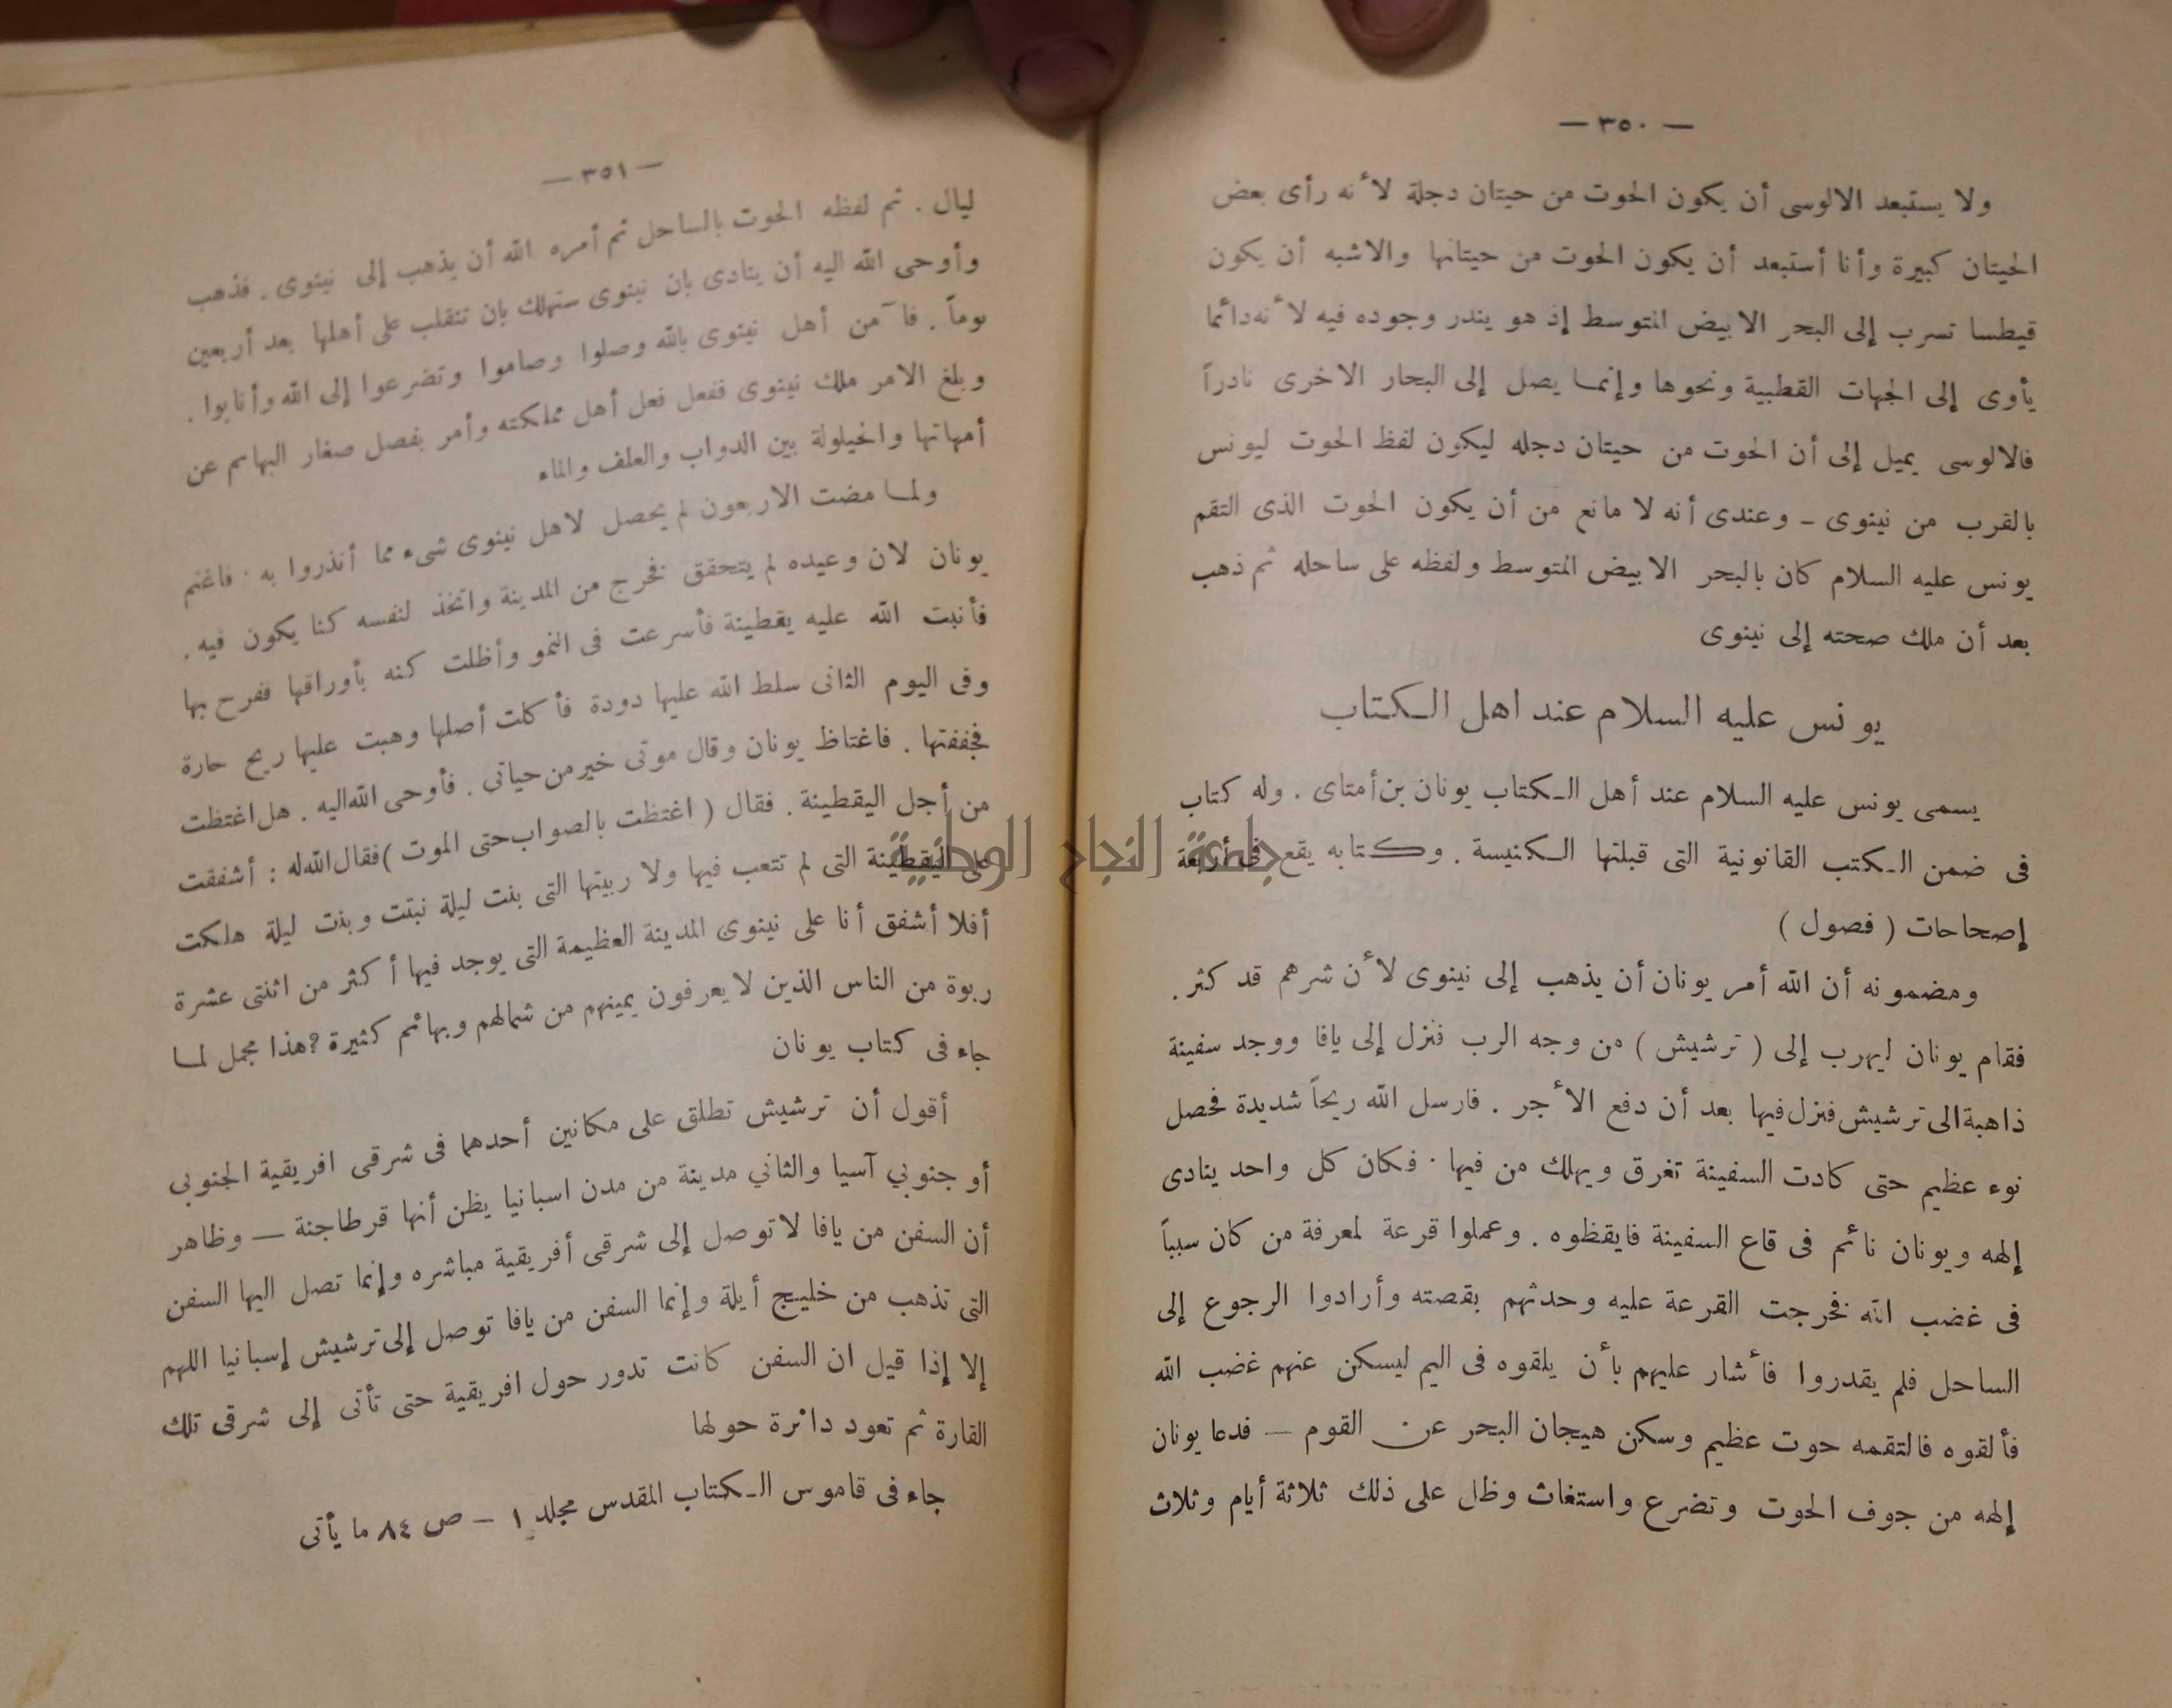 — ٣٥٠ —
ولا يستبعد الالوسى أن يكون الحوت من حيتان دجلة لأنه رأى بعض
الحيتان كبيرة وأنا أستبعد أن يكون الحوت من حيتانها والاشبه أن يكون
قيطسا تسرب إلى البحر الابيض المتوسط إذ هو يندر وجوده فيه لأنه دائما
يأوى إلى الجهات القطبية ونحوها وإنما يصل إلى البحار الاخرى نادراً
فالالوسى يميل إلى أن الحوت من حيتان دجله ليكون لفظ الحوت ليونس
بالقرب من نينوى - وعندى أنه لا مانع من أن يكون الحوت الذى التقم
يونس عليه السلام كان بالبحر الابيض المتوسط ولفظه على ساحله ثم ذهب
بعد أن ملك صحته إلى نينوى
يونس عليه السلام عند اهل الكتاب
يسمى يونس عليه السلام عند أهل الكتاب يونان بن أمتاى . وله كتاب
فى ضمن الكتب القانونية التى قبلتها الكنيسة . وكتابه يقع فى أربعة
إصحاحات ( فصول )
ومضمونه أن الله أمر يونان أن يذهب إلى نينوى لأن شرهم قد كثر .
فقام يونان ليهرب إلى ( ترشيش ) من وجه الرب فنزل إلى يافا ووجد سفينة
ذاهبة الى ترشيش فنزل فيها بعد أن دفع الأجر . فارسل الله ريحاً شديدة فحصل
نوء عظيم حتى كادت السفينة تغرق ويهلك من فيها . فكان كل واحد ينادى
إلهه ويونان نائم فى قاع السفينة فايقظوه . وعملوا قرعة لمعرفة من كان سبباً
فى غضب الله فخرجت القرعة عليه وحدثهم بقصته وأرادوا الرجوع إلى
الساحل فلم يقدروا فأشار عليهم بأن يلقوه فى اليم ليسكن عنهم غضب الله
فألقوه فالتقمه حوت عظيم وسكن هيجان البحر عن القوم — فدعا يونان
إلهه من جوف الحوت وتضرع واستغاث وظل على ذلك ثلاثة أيام وثلاث
— ٣٥١ —
ليال . ثم لفظه الحوت بالساحل ثم أمره الله أن يذهب إلى نينوى . فذهب
وأوحى الله اليه أن ينادى بان نينوى ستهلك بان تنقلب على أهلها بعد أربعين
يوماً . فآمن أهل نينوى بالله وصلوا وصاموا وتضرعوا إلى الله وأنابوا .
وبلغ الامر ملك نينوى ففعل فعل أهل مملكته وأمر بفصل صغار البهائم عن
أمهاتها والحيلولة بين الدواب والعلف والماء
ولما مضت الاربعون لم يحصل لاهل نينوى شىء مما أنذروا به . فاغتم
يونان لان وعيده لم يتحقق فخرج من المدينة واتخذ لنفسه كنا يكون فيه .
فأنبت الله عليه يقطينة فأسرعت فى النمو وأظلت كنه بأوراقها ففرح بها
وفى اليوم الثانى سلط الله عليها دودة فأكلت أصلها وهبت عليها ريح حارة
فجففتها . فاغتاظ يونان وقال موتى خير من حياتى . فأوحى الله اليه . هل اغتظت
من أجل اليقطينة . فقال ( اغتظت بالصواب حتى الموت ) فقال الله له : أشفقت
على اليقطينة التى لم تتعب فيها ولا ربيتها التى بنت ليلة نبتت وبنت ليلة هلكت
أفلا أشفق أنا على نينوى المدينة العظيمة التى يوجد فيها أكثر من اثنتى عشرة
ربوة من الناس الذين لا يعرفون يمينهم من شمالهم وبهائم كثيرة ؟ هذا مجمل لما
جاء فى كتاب يونان
أقول أن ترشيش تطلق على مكانين أحدهما فى شرقى افريقية الجنوبى
أو جنوبي آسيا والثاني مدينة من مدن اسبانيا يظن أنها قرطاجنة — وظاهر
أن السفن من يافا لا توصل إلى شرقى أفريقية مباشره وإنما تصل اليها السفن
التى تذهب من خليج أيلة وإنما السفن من يافا توصل إلى ترشيش إسبانيا اللهم
إلا إذا قيل ان السفن كانت تدور حول افريقية حتى تأتى إلى شرقى تلك
القارة ثم تعود دائرة حولها
جاء فى قاموس الكتاب المقدس مجلد ١ - ص ٨٤ ما يأتى
جامعة النجاح الوطنية